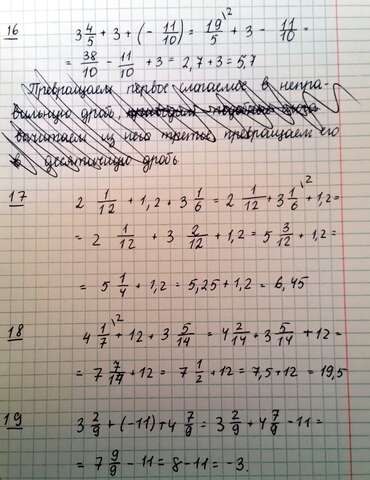 16 3 4/5 + 3 + (- 11/10) = 19/5 \2 + 3 - 11/10 =
= 38/10 - 11/10 + 3 = 2,7 + 3 = 5,7
Превращаем первое слагаемое в непра-
вильную дробь,
вычитаем из него третье, превращаем его
в десятичную дробь.
17 2 1/12 + 1,2 + 3 1/6 = 2 1/12 + 3 1/6 \2 + 1,2 =
= 2 1/12 + 3 2/12 + 1,2 = 5 3/12 + 1,2 =
= 5 1/4 + 1,2 = 5,25 + 1,2 = 6,45
18 4 1/7 \2 + 12 + 3 5/14 = 4 2/14 + 3 5/14 + 12 =
= 7 7/14 + 12 = 7 1/2 + 12 = 7,5 + 12 = 19,5
19 3 2/9 + (-11) + 4 7/9 = 3 2/9 + 4 7/9 - 11 =
= 7 9/9 - 11 = 8 - 11 = -3.